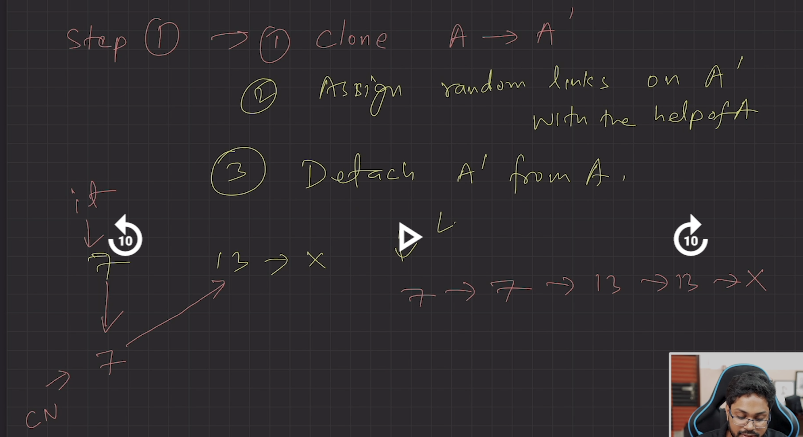 Step ① → ① Clone A → A'
② Assign random links on A'
with the help of A
③ Detach A' from A.
it
10
10
7 13 → X
7 → 7 → 13 → 13 → X
7
CN